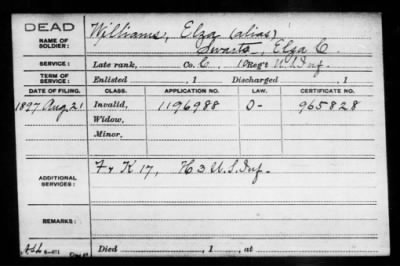 DEAD
NAME OF SOLDIER:
Williams, Elza (alias)
Swarts, Elza C.
SERVICE: Late rank, Co. C, 10 Reg't U.S. Inf.
TERM OF SERVICE: Enlisted , 1 Discharged , 1
DATE OF FILING. CLASS. APPLICATION NO. LAW. CERTIFICATE NO.
1897 Aug. 21 Invalid, 1196988 O- 965828
Widow,
Minor,
ADDITIONAL SERVICES: F & K 17, H 3 U.S. Inf.
REMARKS:
Died , 1 , at